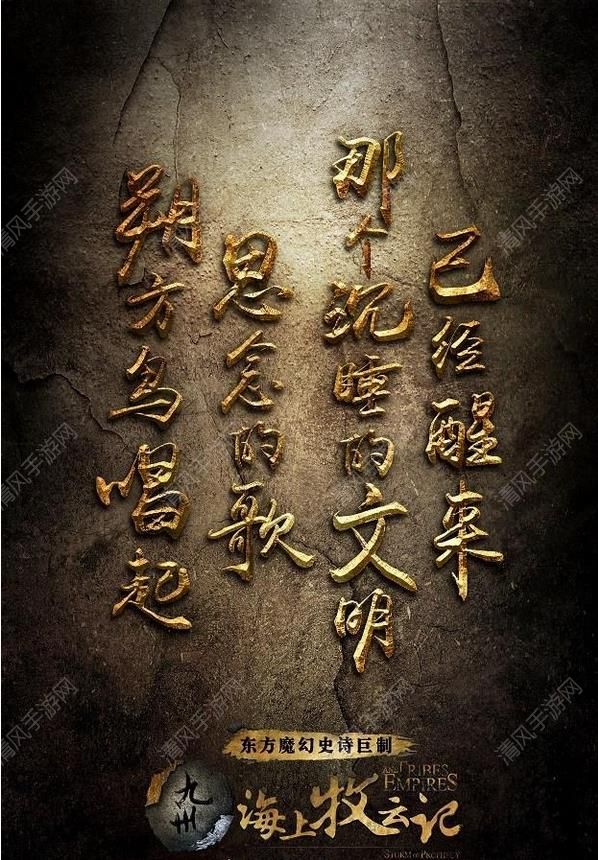 朔方鸟唱起
思念的歌
那个沉睡的文明
已经醒来
东方魔幻史诗巨制
九州
海上牧云记
TRIBES
AND EMPIRES
STORM OF PROPHECY
清风手游网
清风手游网
清风手游网
清风手游网
清风手游网
清风手游网
清风手游网
清风手游网
清风手游网